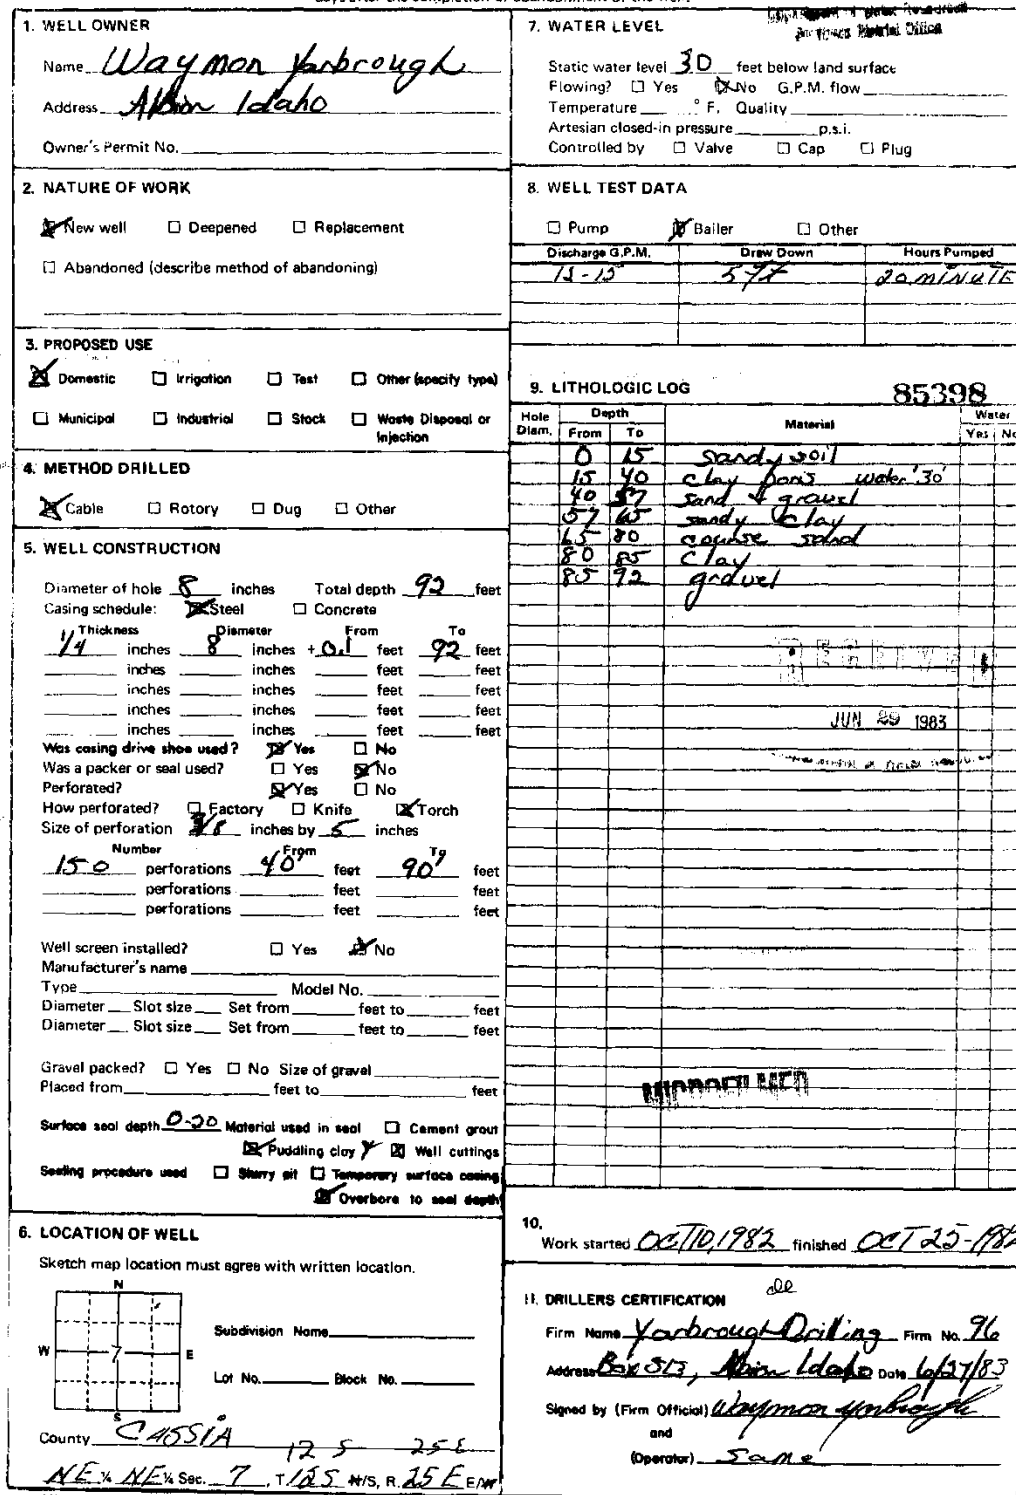 1. WELL OWNER
Name Waymon Yarbrough
Address Albion Idaho
Owner's Permit No.
2. NATURE OF WORK
New well Deepened Replacement
Abandoned (describe method of abandoning)
3. PROPOSED USE
Domestic Irrigation Test Other (specify type)
Municipal Industrial Stock Waste Disposal or
Injection
4. METHOD DRILLED
Cable Rotory Dug Other
5. WELL CONSTRUCTION
Diameter of hole 8 inches Total depth 92 feet
Casing schedule: Steel Concrete
Thickness Diameter From To
1/4 inches 8 inches + 0.1 feet 92 feet
inches inches feet feet
inches inches feet feet
inches inches feet feet
inches inches feet feet
Was casing drive shoe used? Yes No
Was a packer or seal used? Yes No
Perforated? Yes No
How perforated? Factory Knife Torch
Size of perforation inches by 5 inches
Number From To
150 perforations 40' feet 90' feet
perforations feet feet
perforations feet feet
Well screen installed? Yes No
Manufacturer's name
Type Model No.
Diameter Slot size Set from feet to feet
Diameter Slot size Set from feet to feet
Gravel packed? Yes No Size of gravel
Placed from feet to feet
Surface seal depth 0-20 Material used in seal Cement grout
Puddling clay Well cuttings
Sealing procedure used Slurry pit Temporary surface casing
Overbore to seal depth
6. LOCATION OF WELL
Sketch map location must agree with written location.
N
Subdivision Name
W 7 E
Lot No. Block No.
S
County CASSIA 12 S 25 E
NE ¼ NE ¼ Sec. 7, T. 12S N/S, R. 25 E E/W
7. WATER LEVEL
Static water level 30 feet below land surface
Flowing? Yes No G.P.M. flow
Temperature ° F. Quality
Artesian closed-in pressure p.s.i.
Controlled by Valve Cap Plug
8. WELL TEST DATA
Pump Bailer Other
Discharge G.P.M. Draw Down Hours Pumped
20 MINUTE
9. LITHOLOGIC LOG 85398
Hole Depth Material Water
Diam. From To Yes No
0 15 sandy soil
15 40 clay water 30'
40 57 sand & gravel
57 65 sandy clay
65 80 course sand
80 85 clay
85 92 gravel
RECEIVED
JUN 29 1983
MICROFILMED
10.
Work started OCT 10, 1982 finished OCT 25-1982
11. DRILLERS CERTIFICATION
Firm Name Yarbrough Drilling Firm No. 96
Address Box 513, Albion Idaho Date 6/27/83
Signed by (Firm Official) Waymon Yarbrough
and
(Operator) Same